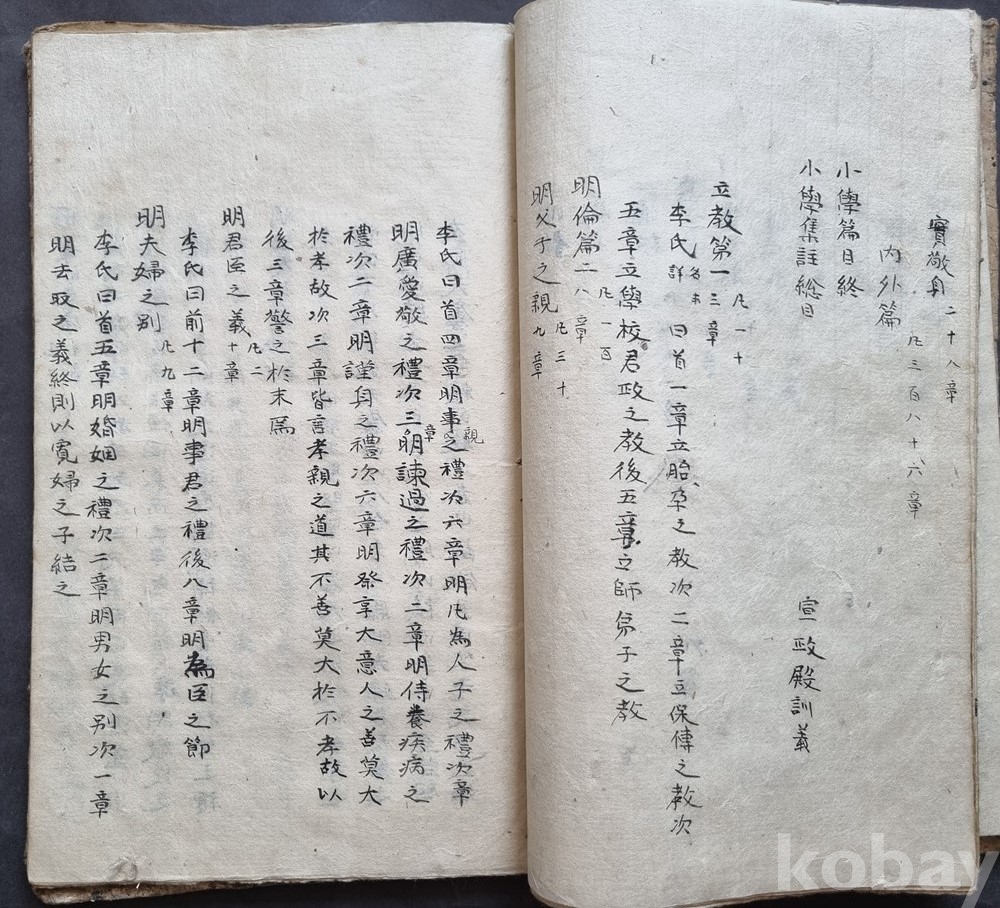 實敬身 二十八章
內外篇 凡三百八十六章
小學篇目終
小學集註緫目 宣政殿訓義
立教第一 凡一十三章
李氏 名未詳 曰首一章立胎孕之教次二章立保傅之教次
五章立學校君政之教後五章立師弟子之教
明倫篇二 凡一百八章
明父子之親 凡三十九章
李氏曰首四章明事親之禮次六章明凡為人子之禮次章
明廣愛敬之禮次三章明諫過之禮次二章明侍養疾病之
禮次二章明謹身之禮次六章明祭享大意人之善莫大
於孝故次三章皆言孝親之道其不善莫大於不孝故以
後三章警之於末焉
明君臣之義 凡二十章
李氏曰前十二章明事君之禮後八章明為臣之節
明夫婦之別 凡九章
李氏曰首五章明婚姻之禮次二章明男女之別次一章
明去取之義終則以寡婦之子結之
kobay